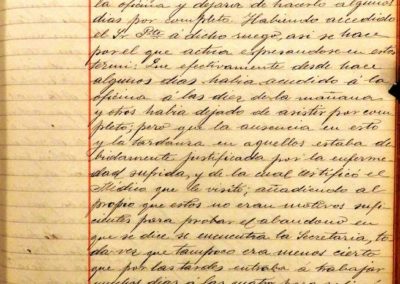 la oficina y dejara de hacerlo algunos
dias por completo. Habiendo accedido
el Sr. Pte á dicho ruego, asi se hace
por el que actua espresandose en estos
termi: Que efectivamente desde hace
algunos dias habia acudido á la
oficina á las diez de la mañana
y otros habia dejado de asistir por com
pleto; pero que la ausencia en esto
y la tardanza en aquellos estaba de
bidamente justificada por la enferme
dad sufrida, y de la cual certificó el
Médico que le visitó; añadiendo al
propio que estos no eran motivos sufi
cientes para probar el abandono en
que se dice se encuentra la Secretaria, to
da vez que tampoco era menos cierto
que por las tardes entraba á trabajar
muchos dias á las cuatro